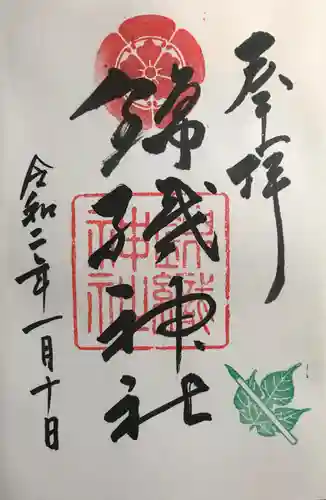 奉拝
錦織神社
錦織
神社
令和二年一月十日